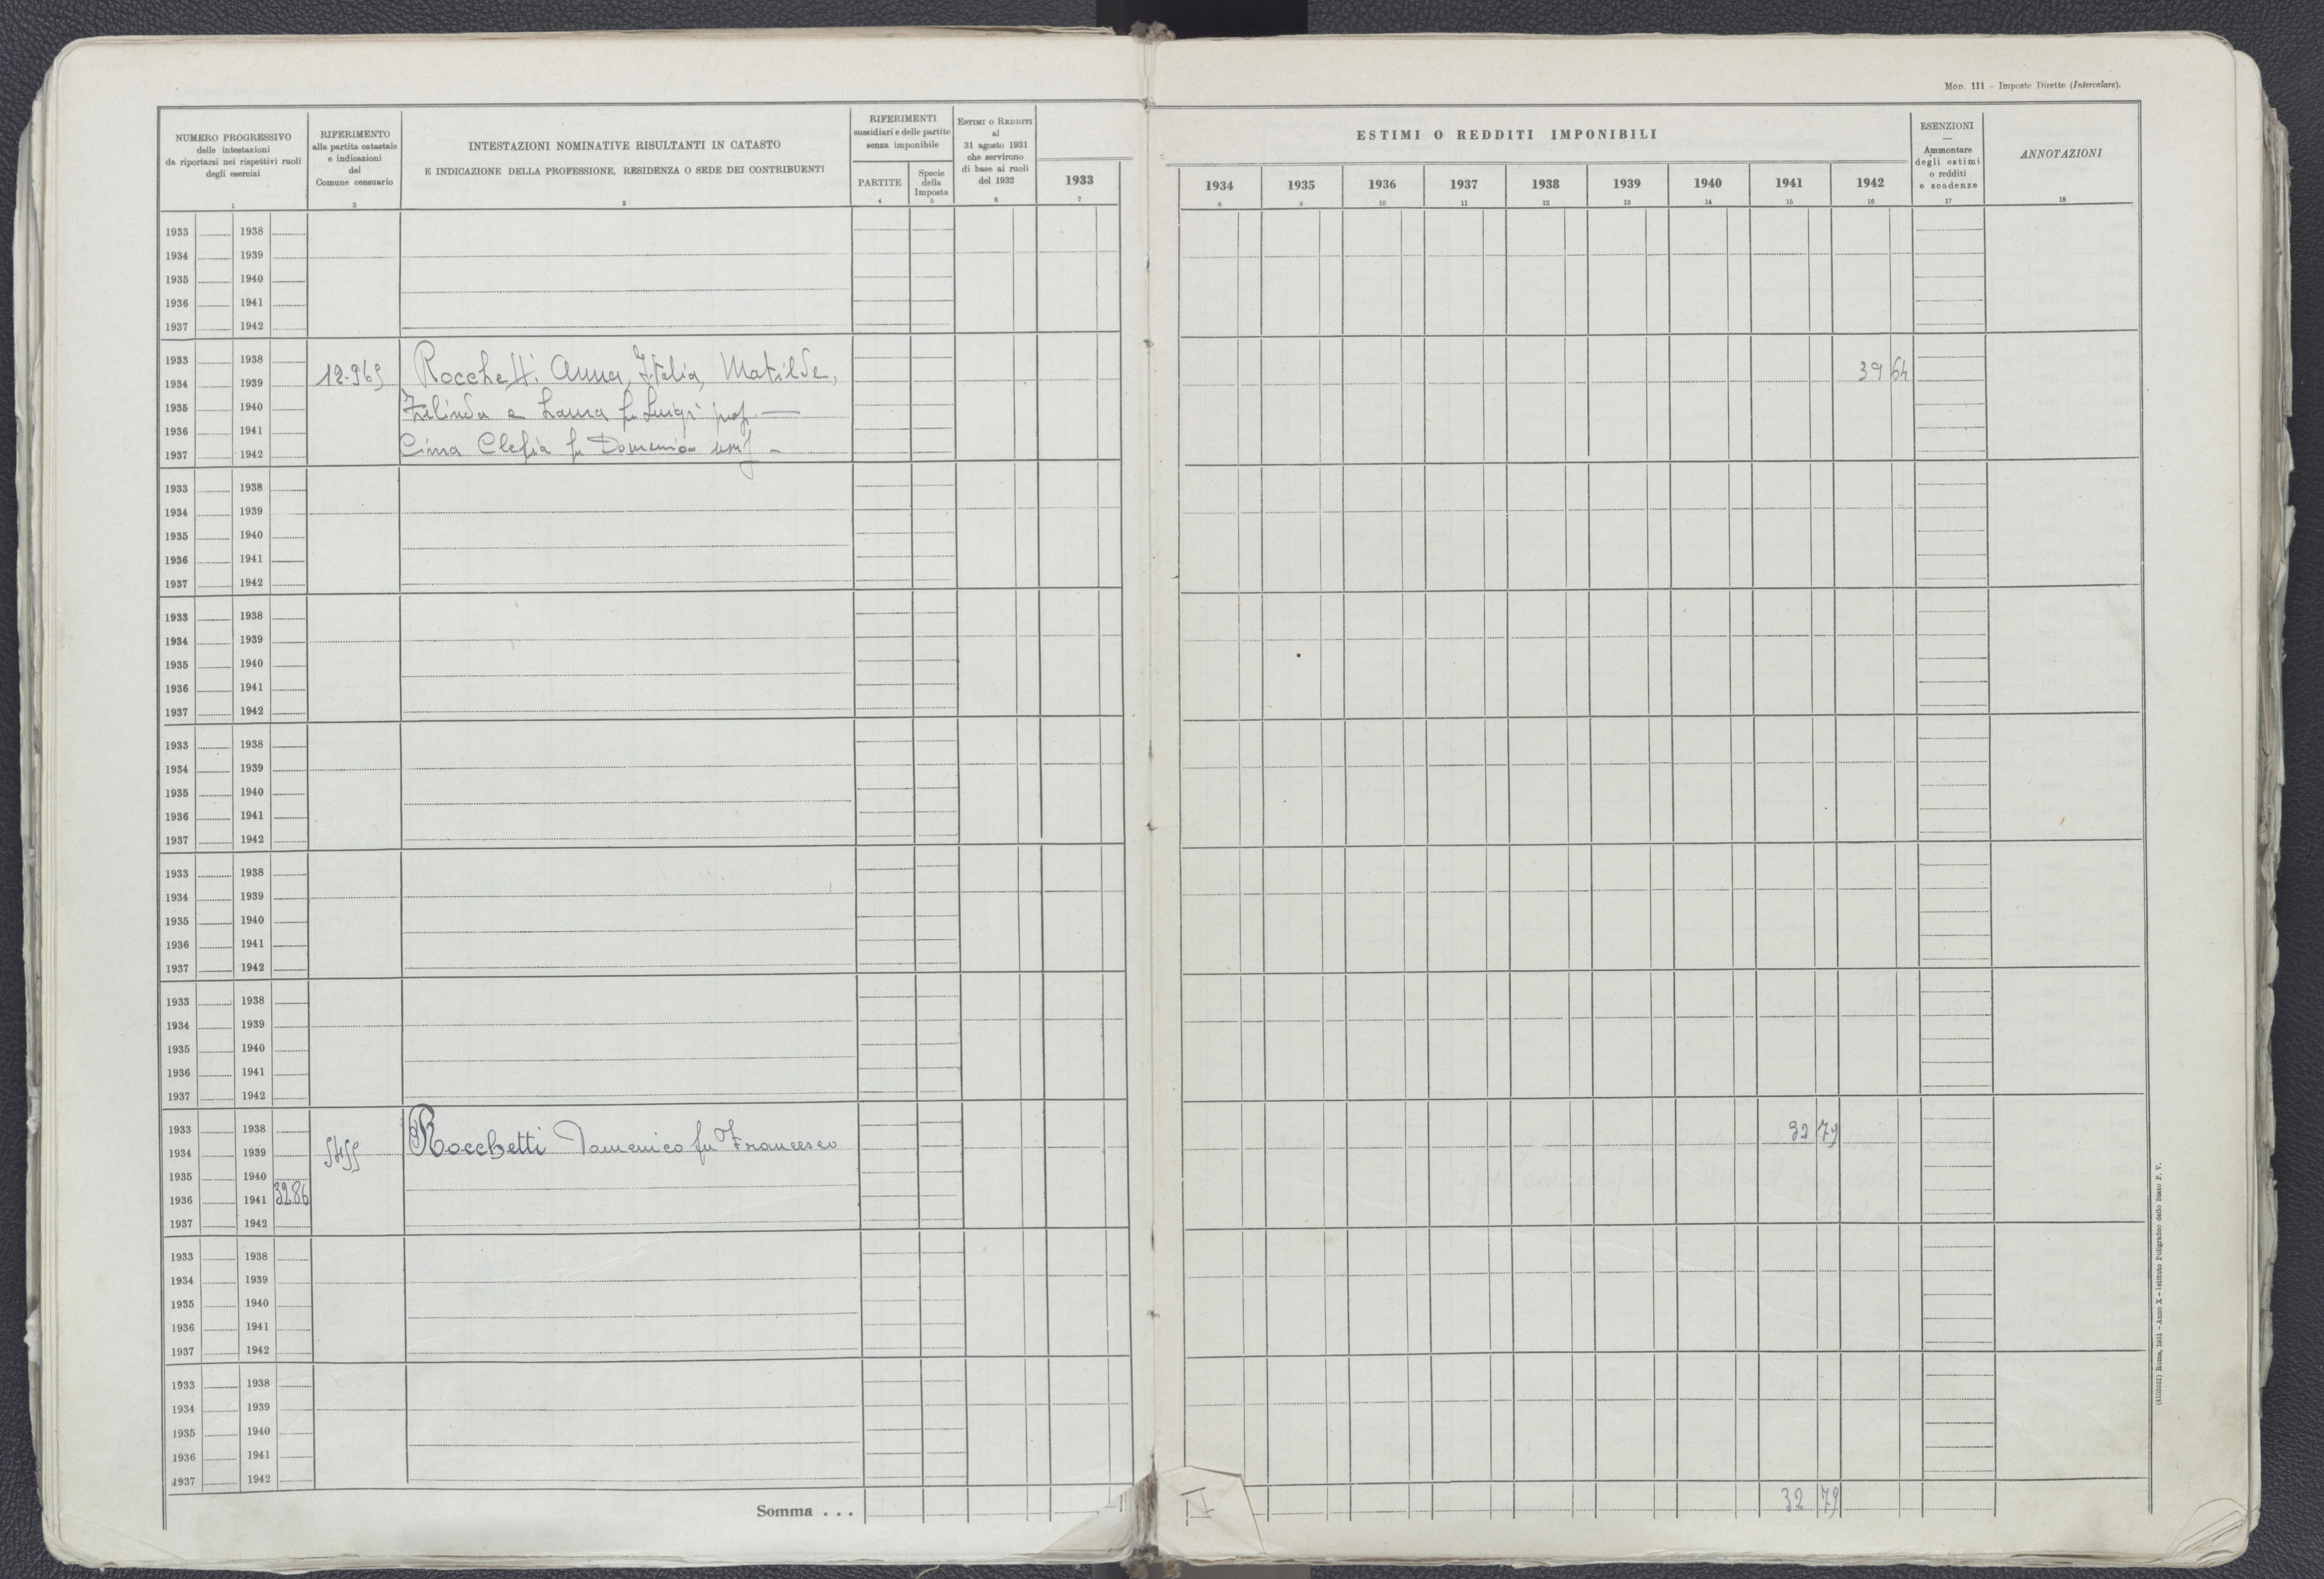 MOD. 111 – Imposte Dirette (Intercalare).
NUMERO PROGRESSIVO
delle intestazioni
da riportarsi nei rispettivi ruoli
degli esercizi
1
RIFERIMENTO
alla partita catastale
e indicazioni
del
Comune censuario
2
INTESTAZIONI NOMINATIVE RISULTANTI IN CATASTO
E INDICAZIONE DELLA PROFESSIONE, RESIDENZA O SEDE DEI CONTRIBUENTI
3
RIFERIMENTI
sussidiari e delle partite
senza imponibile
PARTITE
4
Specie
della
Imposta
5
ESTIMI O REDDITI
al
31 agosto 1931
che servirono
di base ai ruoli
del 1932
6
1933
7
ESTIMI O REDDITI IMPONIBILI
1934 1935 1936 1937 1938 1939 1940 1941 1942
8 9 10 11 12 13 14 15 16
ESENZIONI
—
Ammontare
degli estimi
o redditi
e scadenze
17
ANNOTAZIONI
18
1933 1938
1934 1939
1935 1940
1936 1941
1937 1942
1933 1938
1934 1939 12.969 Rocchetti Anna, Italia, Matilde, 39 64
1935 1940 e Laura fu Luigi prop. —
1936 1941
1937 1942 Cima fu Domenico usuf –
1933 1938
1934 1939
1935 1940
1936 1941
1937 1942
1933 1938
1934 1939
1935 1940
1936 1941
1937 1942
1933 1938
1934 1939
1935 1940
1936 1941
1937 1942
1933 1938
1934 1939
1935 1940
1936 1941
1937 1942
1933 1938
1934 1939
1935 1940
1936 1941
1937 1942
1933 1938 32 79
1934 1939 Rocchetti Domenico fu Francesco
1935 1940
1936 1941 3286
1937 1942
1933 1938
1934 1939
1935 1940
1936 1941
1937 1942
1933 1938
1934 1939
1935 1940
1936 1941
1937 1942
Somma . . . 32 79
Roma, 1931 – Anno X – Istituto Poligrafico dello Stato P. V.